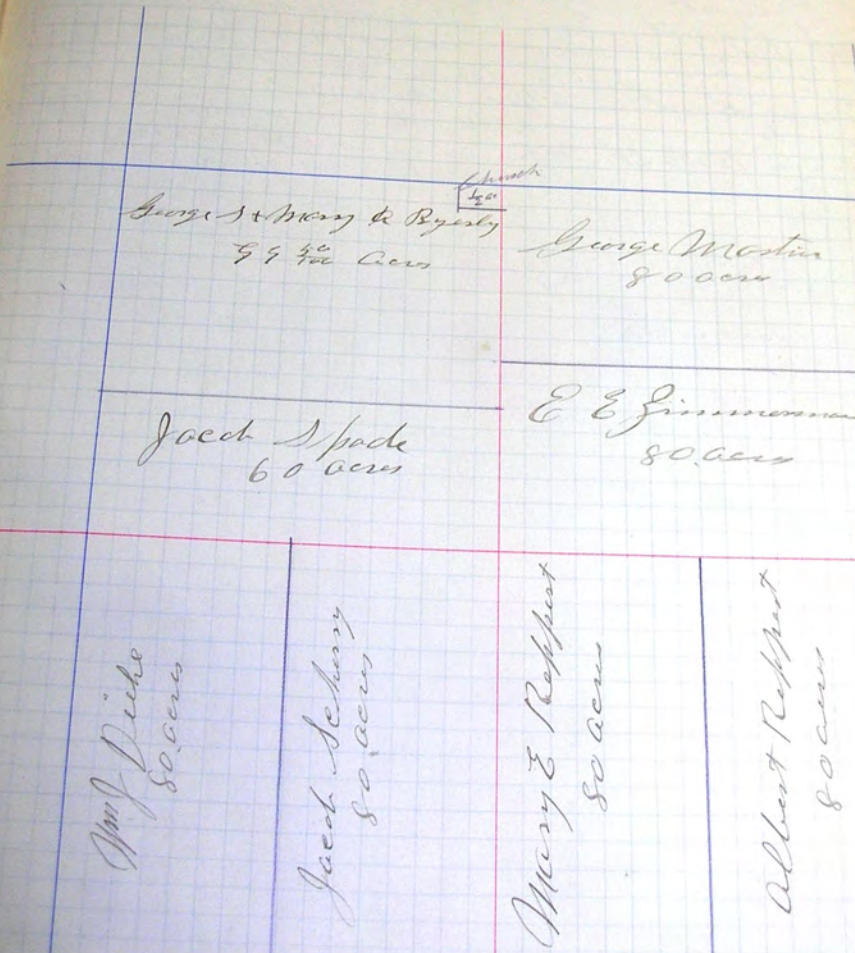 Church
George S & Mary & Byerly
99 50/100 acres
George Mastin
80 acres
Jacob Spade
60 acres
E E Zimmerman
80 acres
Wm J Diehe
80 acres
Jacob Schurry
80 acres
Mary E Reppert
80 acres
Albert Reppert
80 acres